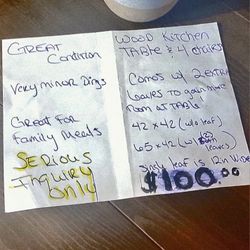 GREAT
Condition
Very minor Dings
Great For
Family Meals
SERIOUS
INquiry
Only
WOOD KITCHEN
TABLE & 4 chairs
Comes w/ 2 extra
Leaves to gain more
room at TABLE!
42 x 42 (w/o leaf)
65 x 42 (w/
leaves)
leaf is 12in wide
$100.00